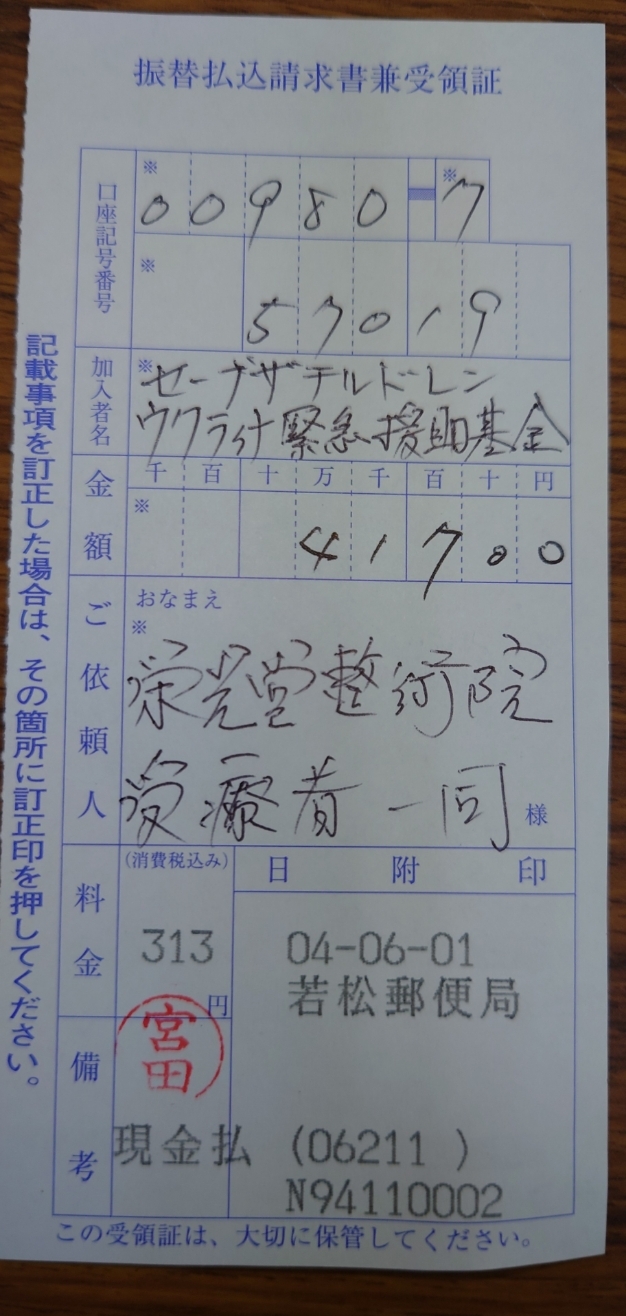 振替払込請求書兼受領証
口座記号番号
※ ※
00980-7
※
57019
加入者名
※
セーブザチルドレン
ウクライナ緊急援助基金
金額
千百十万千百十円
※
41700
ご依頼人
おなまえ
※
栄光堂整術院
受療者一同 様
料金
(消費税込み)
313
円
日附印
04-06-01
若松郵便局
備考
宮田
現金払 (06211 )
N94110002
この受領証は、大切に保管してください。
記載事項を訂正した場合は、その箇所に訂正印を押してください。